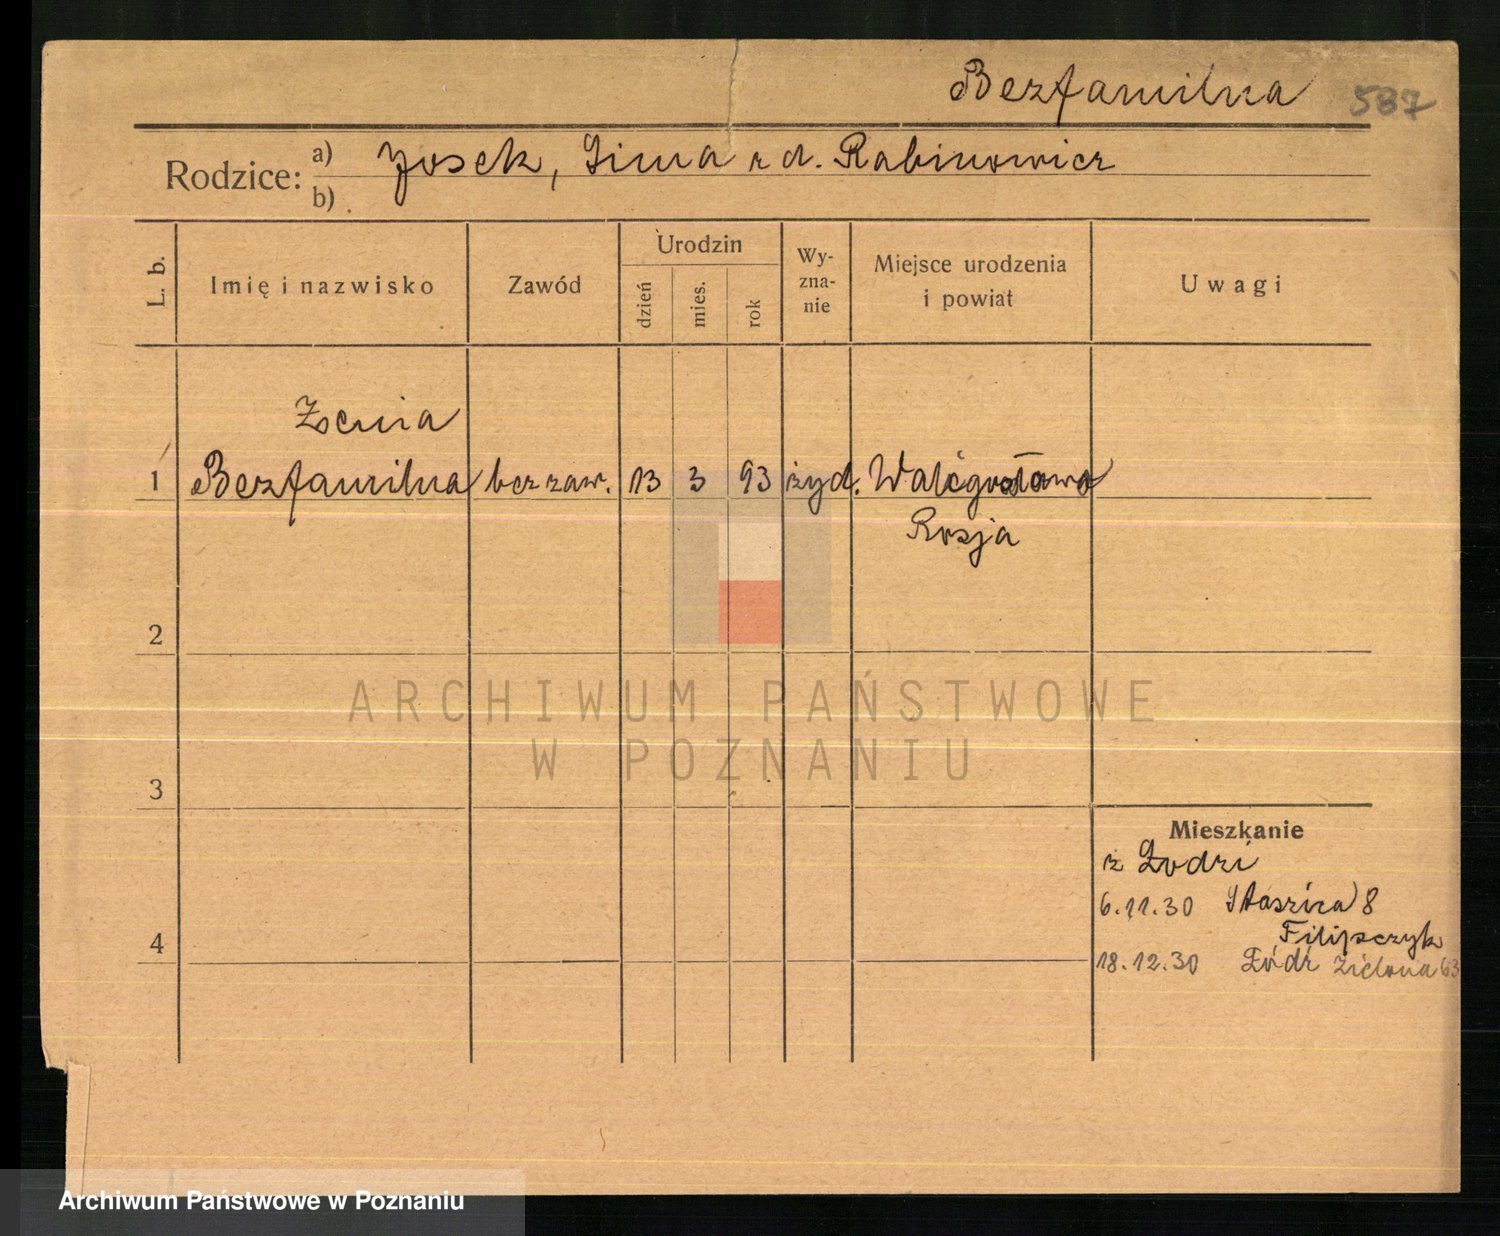 Bezfamilna 587
Rodzice: a) Josek, Sima z d. Rabinowicz
b)
L. b. Imię i nazwisko Zawód Urodzin dzień mies. rok Wy-zna-nie Miejsce urodzenia i powiat Uwagi
Zenia
1 Bezfamilna bez zaw. 13 3 93 żyd.
Rosja
2
ARCHIWUM PAŃSTWOWE
W POZNANIU
3
Mieszkanie
z Łodzi
6.11.30 Staszica 8
Filipczyk
4
18.12.30 Łódź Zielona 63
Archiwum Państwowe w Poznaniu